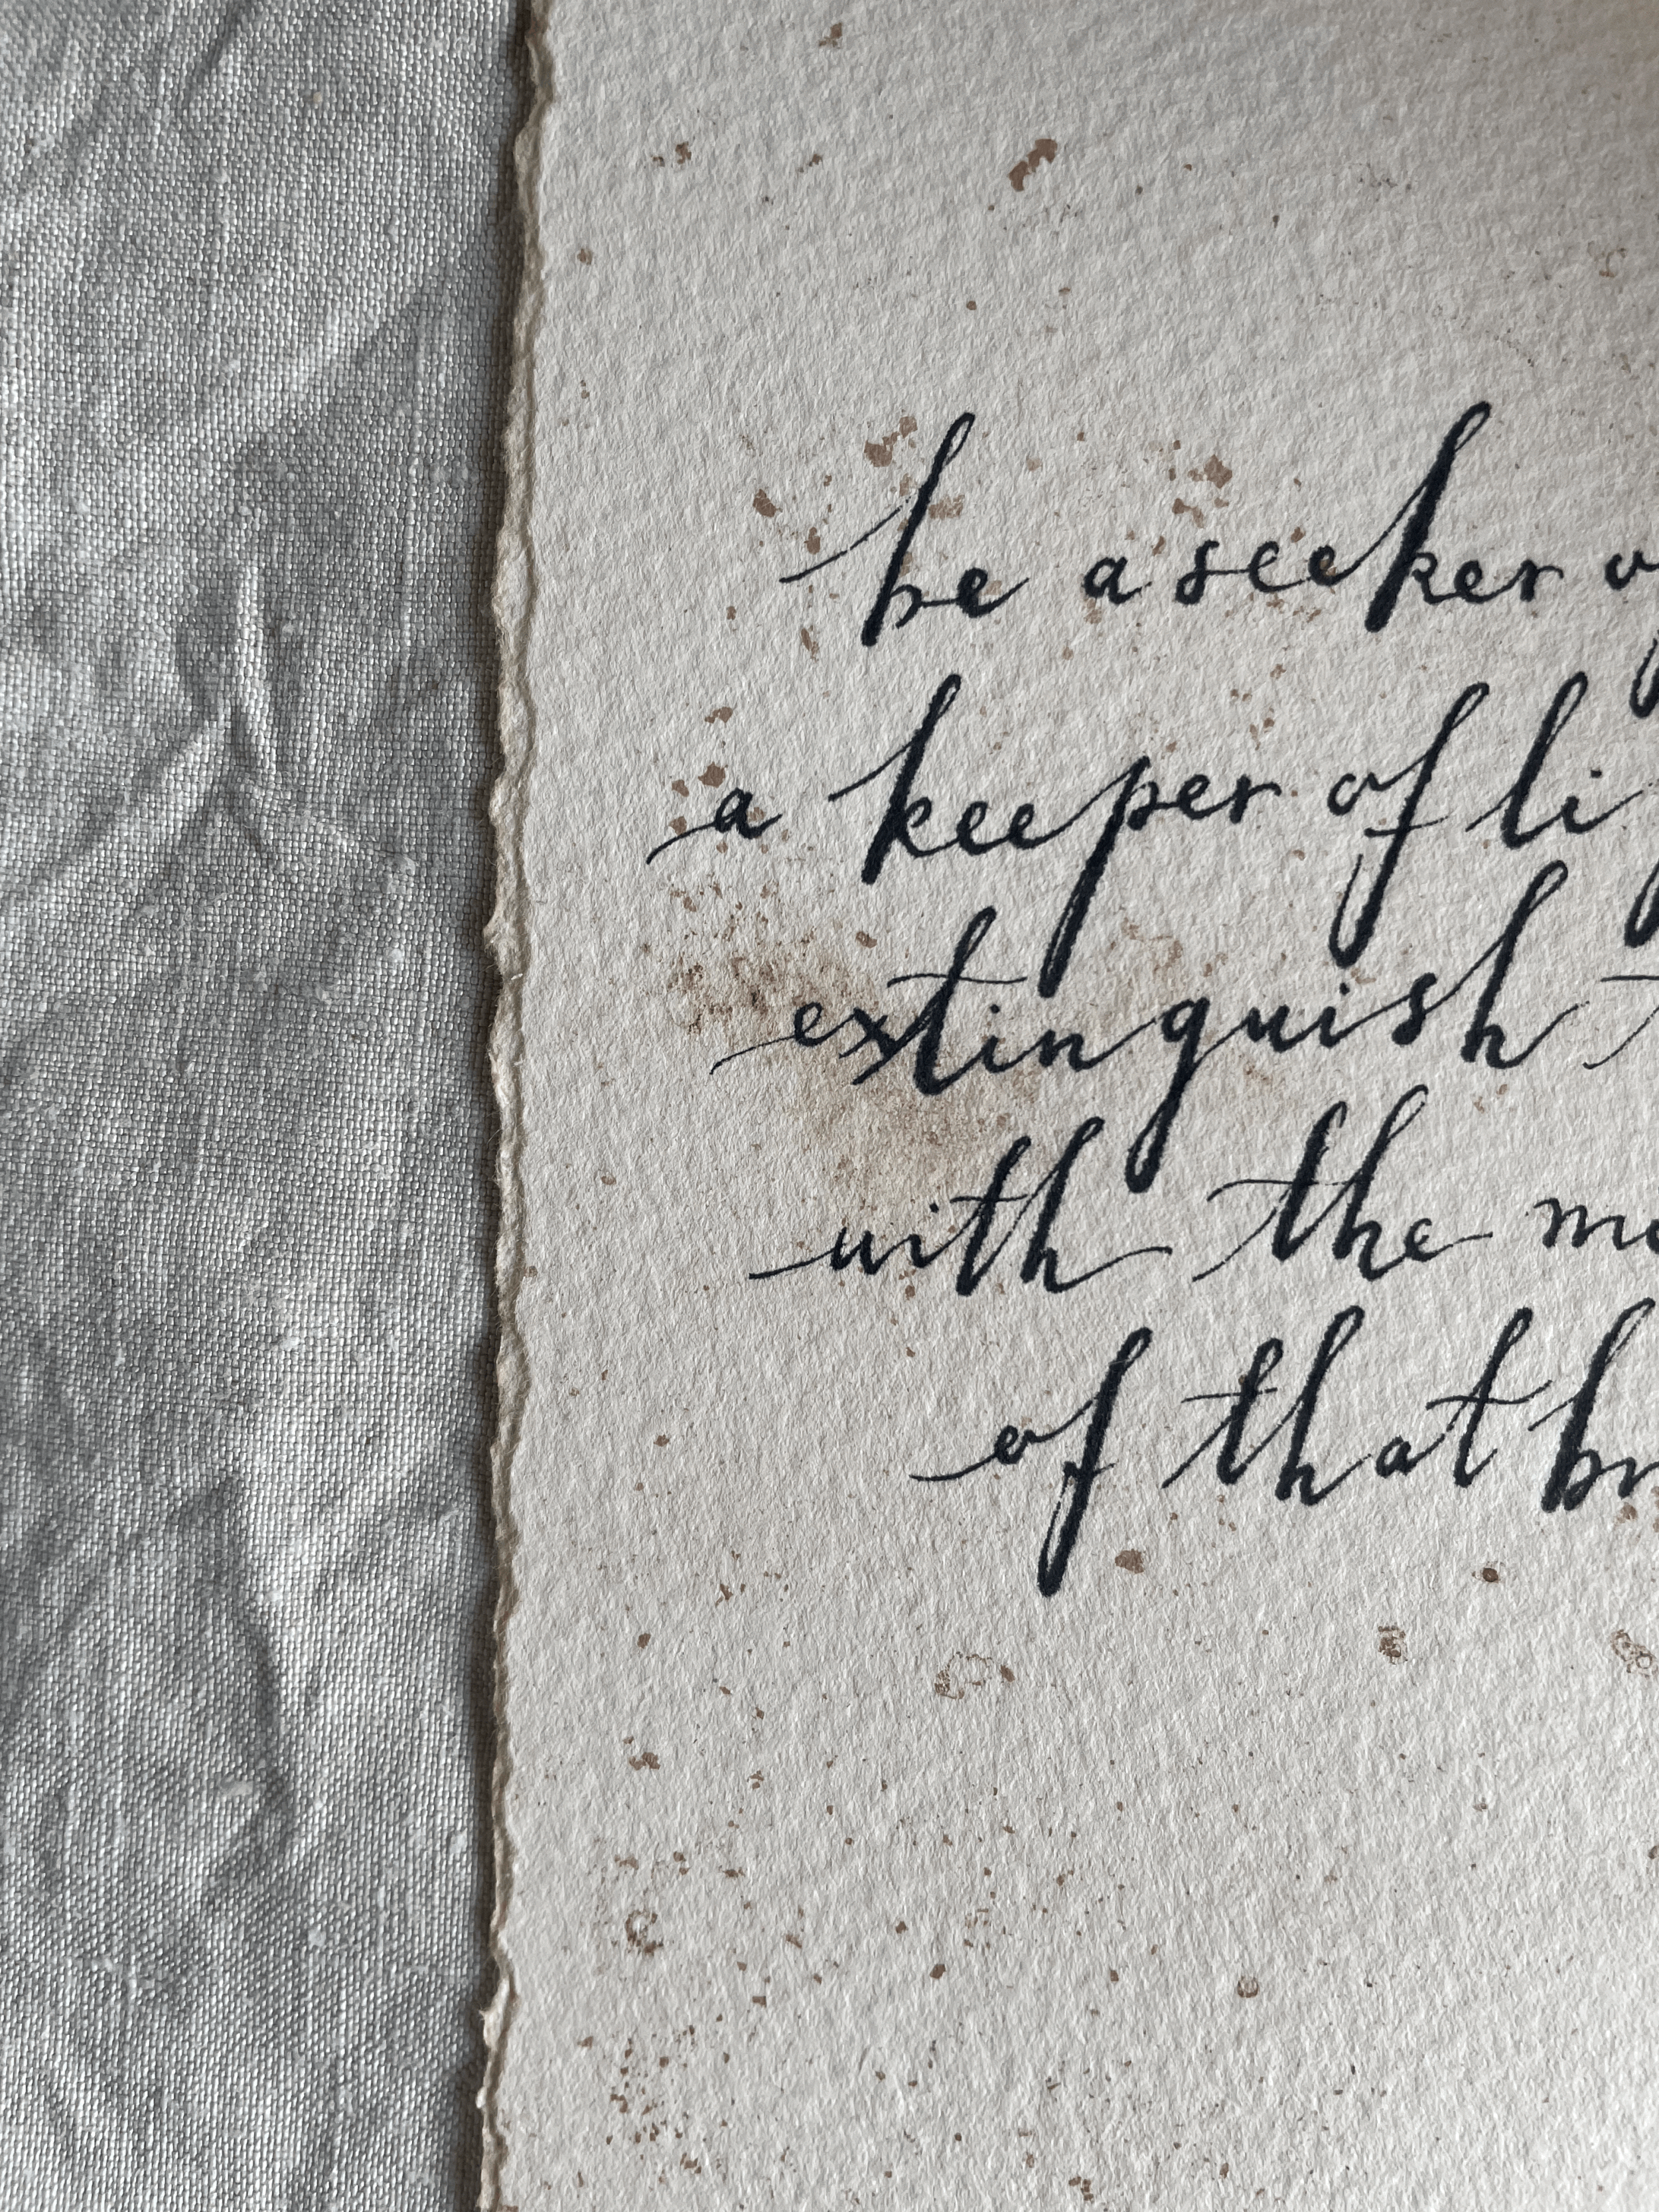 be a seeker
a keeper of
extinguish
with the
of that